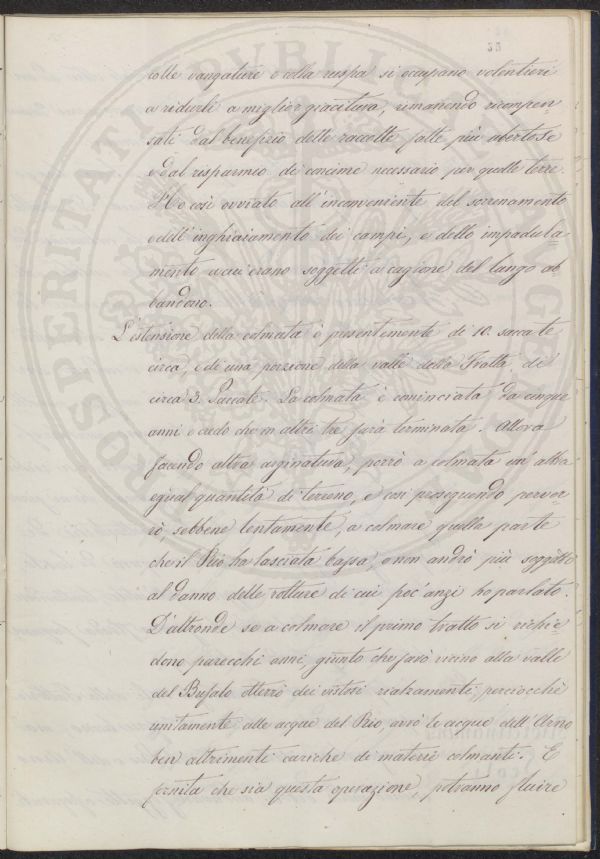 35
colle vangature e colla ruspa si occupano volentieri
a ridurli a miglior giacitura, rimanendo ricompen-
sati dal benefizio delle raccolte fatte più ubertose
e dal risparmio di concime necessario per quelle terre.
Ho così ovviato all'inconveniente del serrenamento
e dell'inghiaiamento dei campi, e dello impadula-
mento a cui erano soggetti a cagione del lungo ab
bandono.
L'estensione della colmata è presentemente di 10. saccate
circa, e di una porzione della valle della Fratta, di
circa 3. Saccate. La colmata è cominciata da cinque
anni e credo che in altri tre sarà terminata. Allora
facendo altra arginatura, porrò a colmata un'altra
egual quantità di terreno, e così proseguendo perver-
rò, sebbene lentamente, a colmare quella parte
che il Rio ha lasciata bassa, e non andrò più soggetto
al danno delle rotture di cui poc'anzi ho parlato.
D'altronde se a colmare il primo tratto si richie-
dono parecchi anni, giunto che sarò vicino alla valle
del Bufalo otterrò dei vistosi rialzamenti, perciocchè
unitamente alle acque del Rio, avrò le acque dell'Arno
ben altrimenti cariche di materie colmanti. E
fornita che sia questa operazione, potranno fluire
PROSPERITATI PUBLICAE AUGENDAE